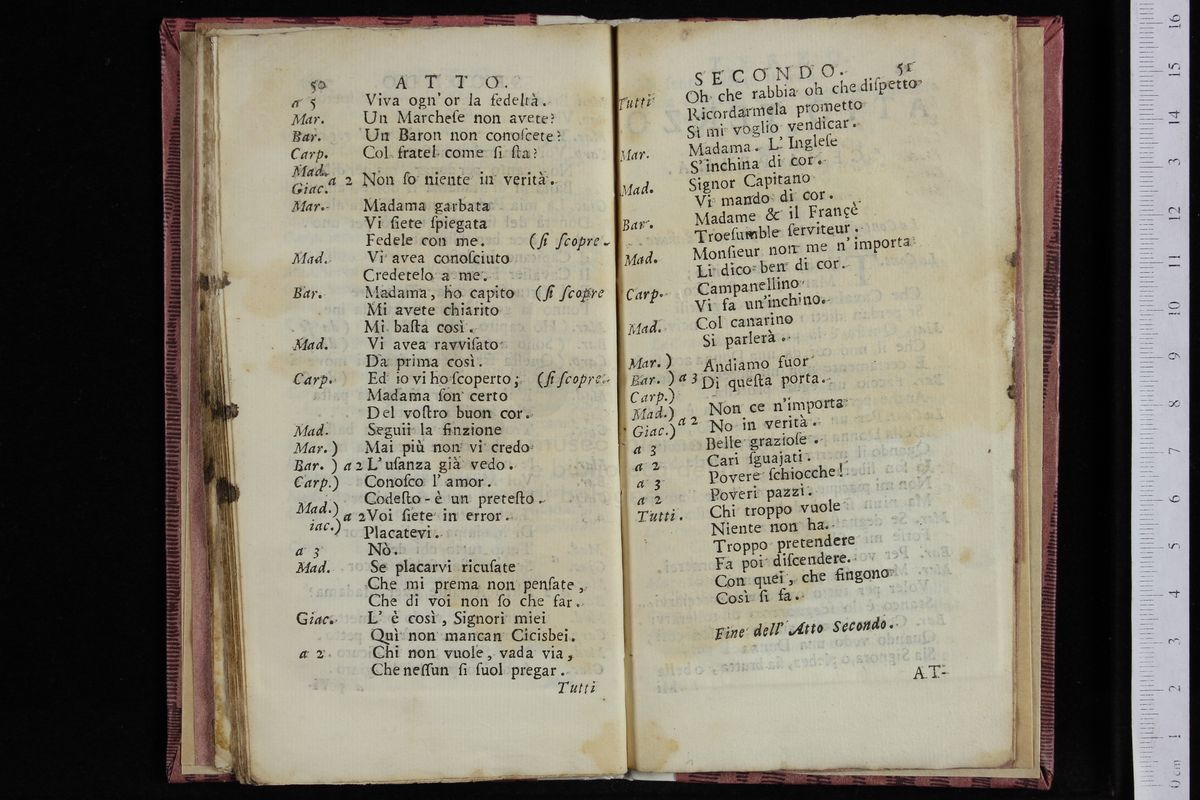 50 ATTO.
a 5 Viva ogn'or la fedeltà.
Mar. Un Marcheſe non avete?
Bar. Un Baron non conoſcete?
Carp. Col fratel come ſi ſta?
Mad.
Giac. a 2 Non ſo niente in verità.
Mar. Madama garbata
Vi ſiete ſpiegata
Fedele con me. (ſi ſcopre.
Mad. Vi avea conoſciuto
Credetelo a me.
Bar. Madama, ho capito (ſi ſcopre
Mi avete chiarito
Mi baſta così.
Mad. Vi avea ravviſato
Da prima così.
Carp. Ed io vi ho ſcoperto; (ſi ſcopre.
Madama ſon certo
Del voſtro buon cor.
Mad. Seguii la finzione
Mar. ) Mai più non vi credo
Bar. ) a 2 L'uſanza già vedo.
Carp.) Conoſco l'amor.
Codeſto-è un preteſto.
Mad.)
iac.) a 2 Voi ſiete in error.
Placatevi.
a 3 Nò.
Mad. Se placarvi ricuſate
Che mi prema non penſate,
Che di voi non ſo che far.
Giac. L'è così, Signori miei
Quì non mancan Cicisbei.
a 2 Chi non vuole, vada via,
Che neſſun ſi ſuol pregar.
Tutti
SECONDO. 51
Tutti Oh che rabbia oh che diſpetto
Ricordarmela prometto
Si mi voglio vendicar.
Mar. Madama. L'Ingleſe
S'inchina di cor.
Mad. Signor Capitano
Vi mando di cor.
Bar. Madame & il Françè
Troeſumble ſerviteur.
Mad. Monſieur non me n'importa
Li dico ben di cor.
Carp. Campanellino
Vi fa un'inchino.
Mad. Col canarino
Si parlerà.
Mar. ) Andiamo fuor
Bar. ) a 3 Di queſta porta.
Carp.)
Mad.) Non ce n'importa
Giac.) a 2 No in verità.
a 3 Belle grazioſe.
a 2 Cari ſguajati.
a 3 Povere ſchiocche!
a 2 Poveri pazzi.
Tutti. Chi troppo vuole
Niente non ha.
Troppo pretendere
Fa poi diſcendere.
Con quei, che fingono
Così ſi fa.
Fine dell'Atto Secondo.
AT-